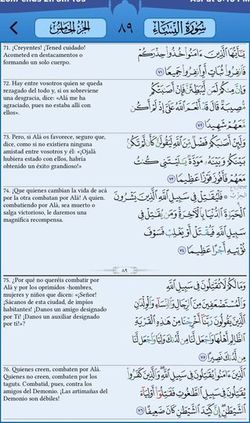 سورة النساء
٨٩
الجزء الخامس
71. ¡Creyentes! ¡Tened cuidado!
Acometed en destacamentos o
formando un solo cuerpo.
يَـٰٓأَيُّهَا ٱلَّذِينَ ءَامَنُوا۟ خُذُوا۟ حِذْرَكُمْ
فَٱنفِرُوا۟ ثُبَاتٍ أَوِ ٱنفِرُوا۟ جَمِيعًا ٧١
72. Hay entre vosotros quien se queda
rezagado del todo y, si os sobreviene
una desgracia, dice: «Alá me ha
agraciado, pues no estaba allí con
ellos».
وَإِنَّ مِنكُمْ لَمَن لَّيُبَطِّئَنَّ فَإِنْ أَصَـٰبَتْكُم
مُّصِيبَةٌ قَالَ قَدْ أَنْعَمَ ٱللَّهُ عَلَىَّ إِذْ لَمْ أَكُن
مَّعَهُمْ شَهِيدًا ٧٢
73. Pero, si Alá os favorece, seguro que,
dice, como si no existiera ninguna
amistad entre vosotros y él: «¡Ojalá
hubiera estado con ellos, habría
obtenido un éxito grandioso!»
وَلَئِنْ أَصَـٰبَكُمْ فَضْلٌ مِّنَ ٱللَّهِ لَيَقُولَنَّ كَأَن لَّمْ تَكُنۢ
بَيْنَكُمْ وَبَيْنَهُۥ مَوَدَّةٌ يَـٰلَيْتَنِى كُنتُ
مَعَهُمْ فَأَفُوزَ فَوْزًا عَظِيمًا ٧٣
74. ¡Que quienes cambian la vida de acá
por la otra combatan por Alá! A quien.
combatiendo por Alá, sea muerto o
salga victorioso, le daremos una
magnífica recompensa.
فَلْيُقَـٰتِلْ فِى سَبِيلِ ٱللَّهِ ٱلَّذِينَ يَشْرُونَ
ٱلْحَيَوٰةَ ٱلدُّنْيَا بِٱلْـَٔاخِرَةِ وَمَن يُقَـٰتِلْ فِى
سَبِيلِ ٱللَّهِ فَيُقْتَلْ أَوْ يَغْلِبْ فَسَوْفَ
نُؤْتِيهِ أَجْرًا عَظِيمًا ٧٤
٨٩
75. ¿Por qué no queréis combatir por
Alá y por los oprimidos -hombres,
mujeres y niños que dicen: «¡Señor!
¡Sácanos de esta ciudad, de impíos
habitantes! ¡Danos un amigo designado
por Ti! ¡Danos un auxiliar designado
por ti!»?
وَمَا لَكُمْ لَا تُقَـٰتِلُونَ فِى سَبِيلِ ٱللَّهِ
وَٱلْمُسْتَضْعَفِينَ مِنَ ٱلرِّجَالِ وَٱلنِّسَآءِ وَٱلْوِلْدَٰنِ
ٱلَّذِينَ يَقُولُونَ رَبَّنَآ أَخْرِجْنَا مِنْ هَـٰذِهِ ٱلْقَرْيَةِ
ٱلظَّالِمِ أَهْلُهَا وَٱجْعَل لَّنَا مِن لَّدُنكَ وَلِيًّا وَٱجْعَل لَّنَا
مِن لَّدُنكَ نَصِيرًا ٧٥
76. Quienes creen, combaten por Alá.
Quienes no creen, combaten por los
taguts. Combatid, pues, contra los
amigos del Demonio. ¡Las artimañas del
Demonio son débiles!
ٱلَّذِينَ ءَامَنُوا۟ يُقَـٰتِلُونَ فِى سَبِيلِ ٱللَّهِ وَٱلَّذِينَ كَفَرُوا۟
يُقَـٰتِلُونَ فِى سَبِيلِ ٱلطَّـٰغُوتِ فَقَـٰتِلُوٓا۟ أَوْلِيَآءَ
ٱلشَّيْطَـٰنِ إِنَّ كَيْدَ ٱلشَّيْطَـٰنِ كَانَ ضَعِيفًا ٧٦